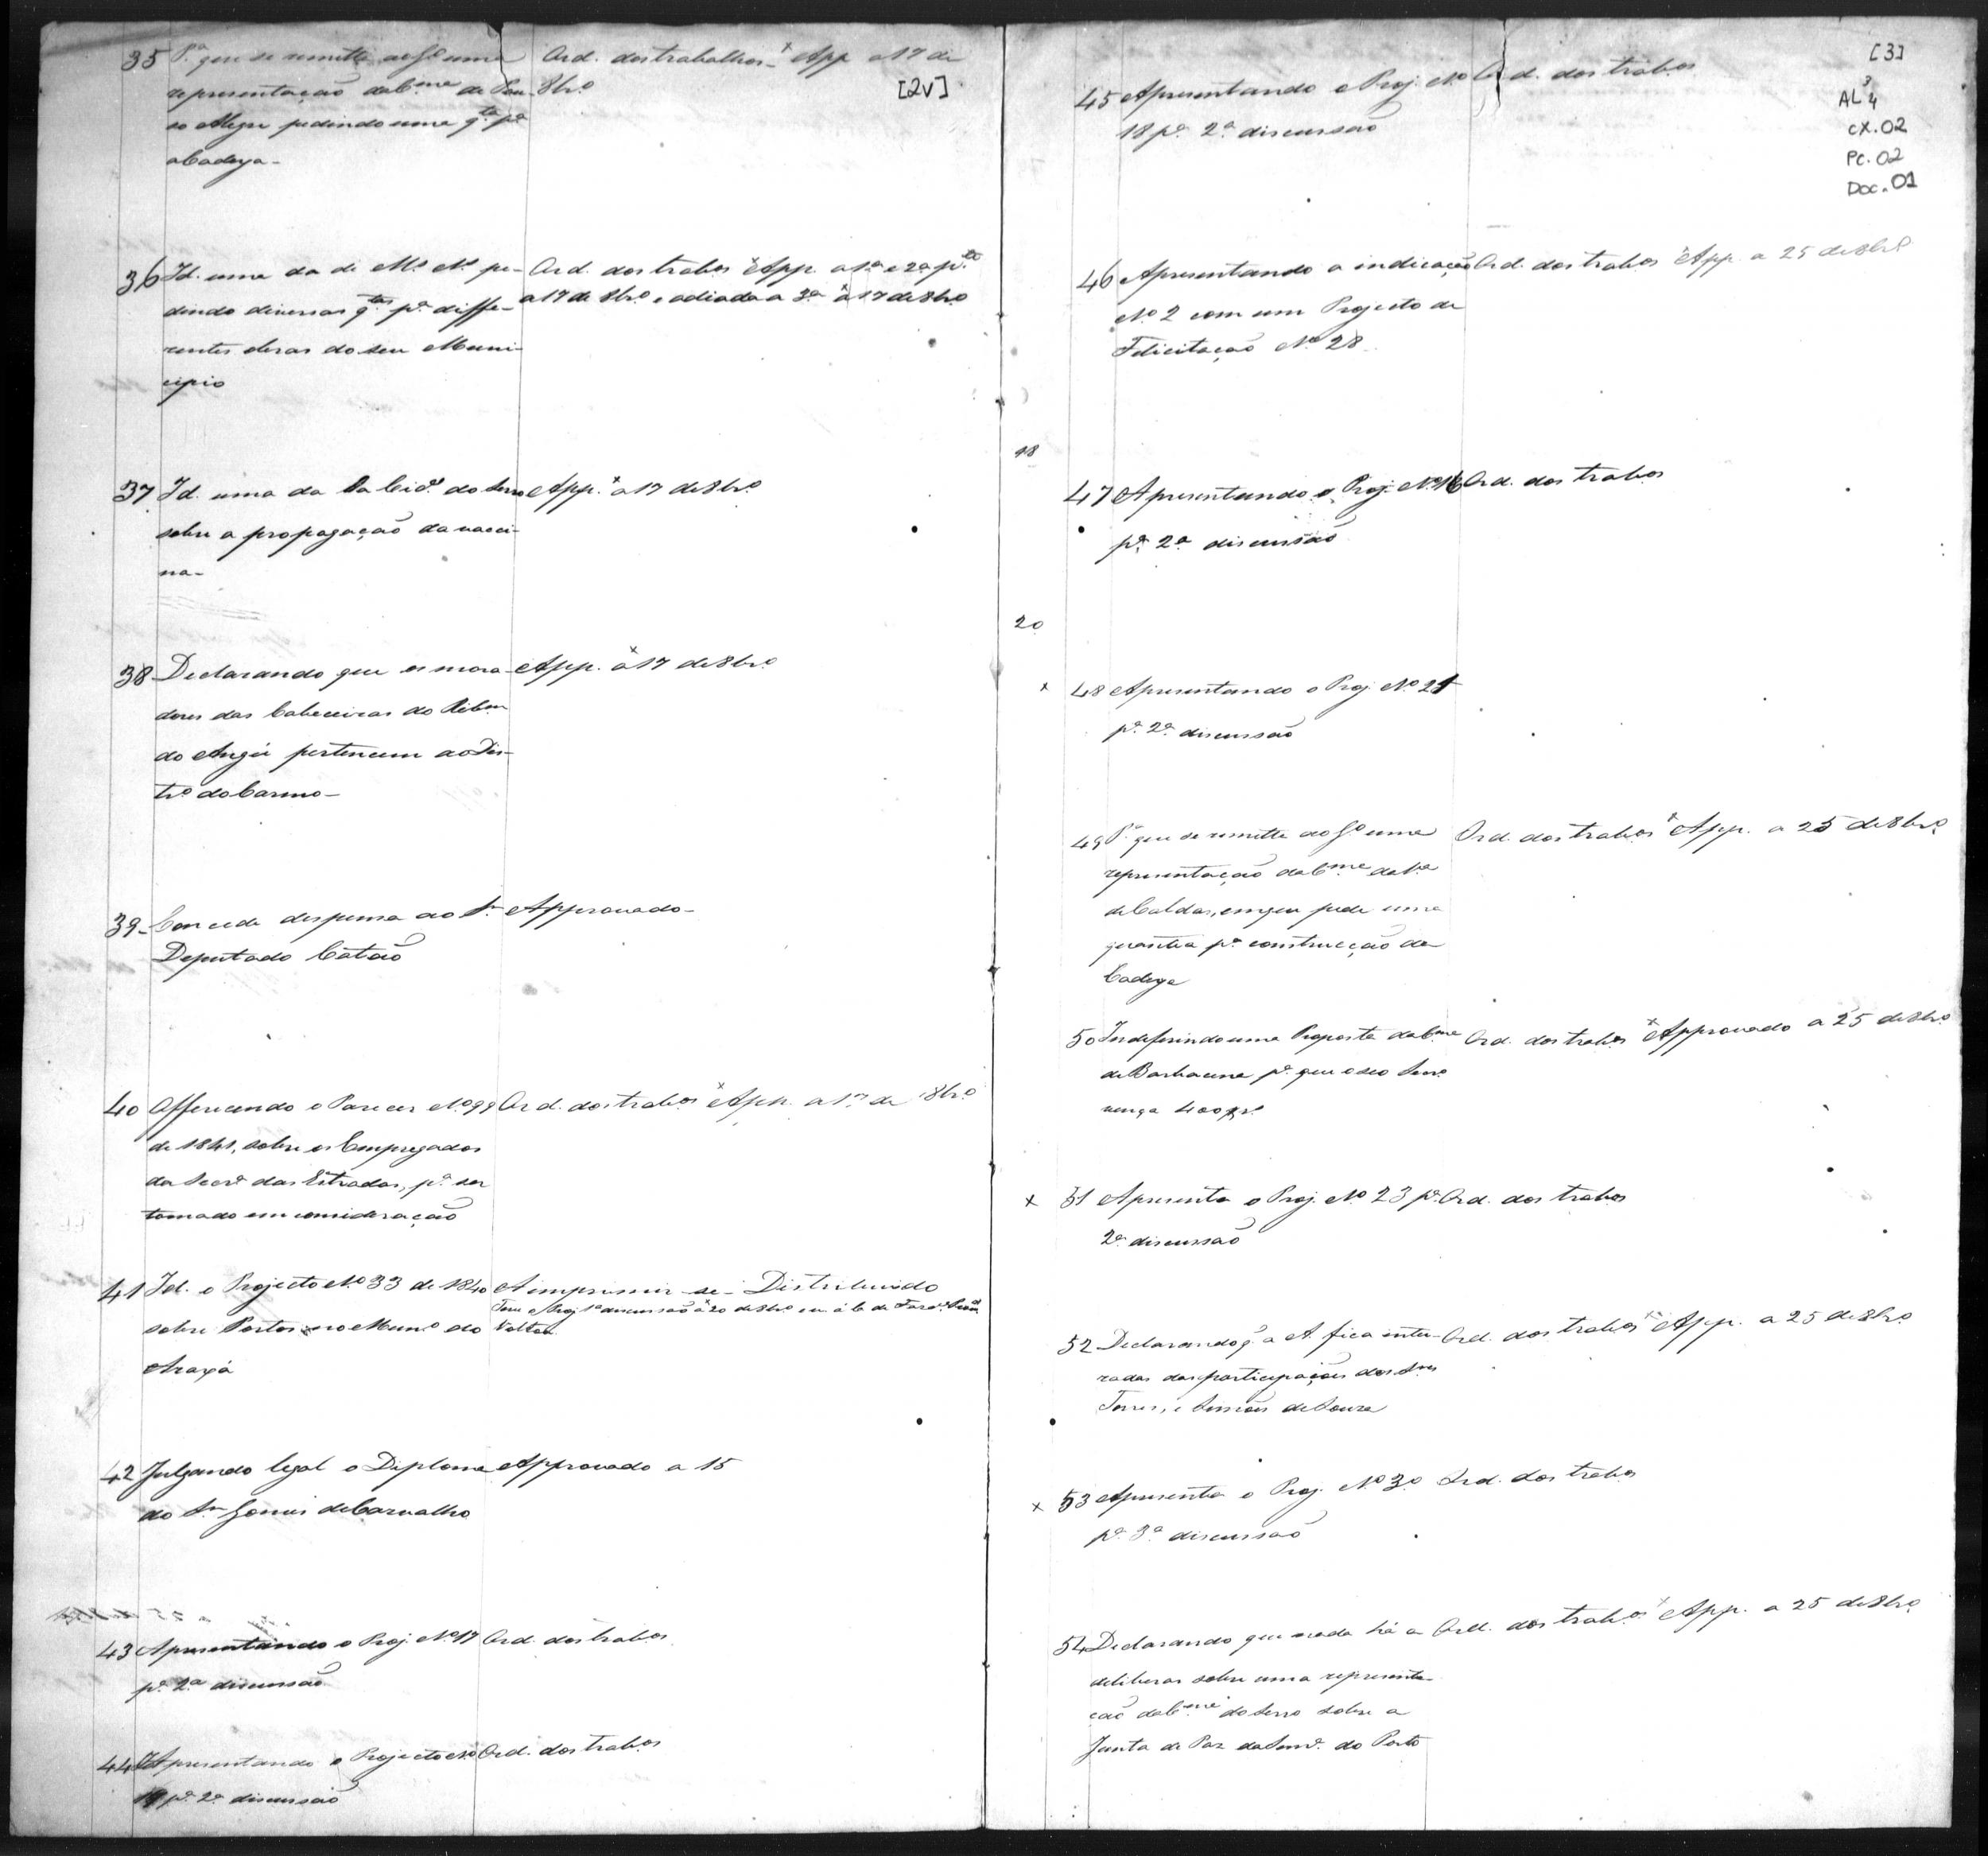 [2v]
35 Pª que se remette ao Gº uma Ord. dos trabalhos - App a 17 de
representação da Cmª de Pou- 8brº
so Alegre pedindo uma qtª pª
a Cadeya -
36 Id. uma da de Mº Nº pe- Ord. dos trabos App. a 1ª e 2ª pte
dindo diversas qtas pª diffe- a 17 de 8brº e adiada a 3ª a 17 de 8brº
rentes obras do seu Muni-
cipio
37 Id. uma da da Cidº do Serro App. a 17 de 8brº
sobre a propagação da vacci-
na -
38 Declarando que os mora- App. a 17 de 8brº
dores das Cabeceiras do Ribm
do Angú pertencem ao Dis-
trº do Carmo -
39 - Concede dispensa ao Sr Approvado -
Deputado Catão
40 Offerecendo o Parecer Nº 99 Ord. dos trabos App. a 17 de 8brº
de 1841, sobre os Empregados
da Secrª das Estradas, pª ser
tomado em consideração
41 Id. o Projecto Nº 33 de 1840 A imprimir-se - Distribuido
Teve o Proj 1ª discussão a 20 de 8brº
sobre Portos no Munº do Voltou
Araxá
42 Julgando legal o Diploma Approvado a 15
do Sr Gomes de Carvalho
43 Apresentando o Proj. Nº 17 Ord. dos trabos
pª 2ª discussão
44 Apresentando o Projecto Nº Ord. dos trabos
19 pª 2ª discussão
[3]
AL 3/4
CX. 02
PC. 02
Doc. 01
45 Apresentando o Proj. Nº Ord. dos trabos
18 pª 2ª discussão
46 Apresentando a indicação Ord. dos trabos App. a 25 de 8brº
Nº 2 com um Projecto de
Felicitação Nº 28
18
47 Apresentando o Proj. Nº 16 Ord. dos trabos
pª 2ª discussão
20
x 48 Apresentando o Proj. Nº 21
pª 2ª discussão
49 Pª que se remette ao Gº uma Ord. dos trabos App. a 25 de 8brº
representação da Cmª da Vª
de Caldas, em que pede uma
quantia pª construcção da
Cadeya
50 Indeferindo uma Proposta da Cmª Ord. dos trabos Approvado a 25 de 8brº
de Barbacena pª que o seo Secrº
vença 400$rs
x 51 Apresenta o Proj. Nº 23 pª Ord. dos trabos
2ª discussão
52 Declarando q. a A. fica intei- Ord. dos trabos App. a 25 de 8brº
radas das participações dos Snres
Torres, e Simões de Souza
x 53 Apresenta o Proj. Nº 30 Ord. dos trabos
pª 3ª discussão
54 Declarando que nada há a Ord. dos trabos App. a 25 de 8brº
deliberar sobre uma representa-
ção da Cmª do Serro sobre a
Junta de Paz da do Porto